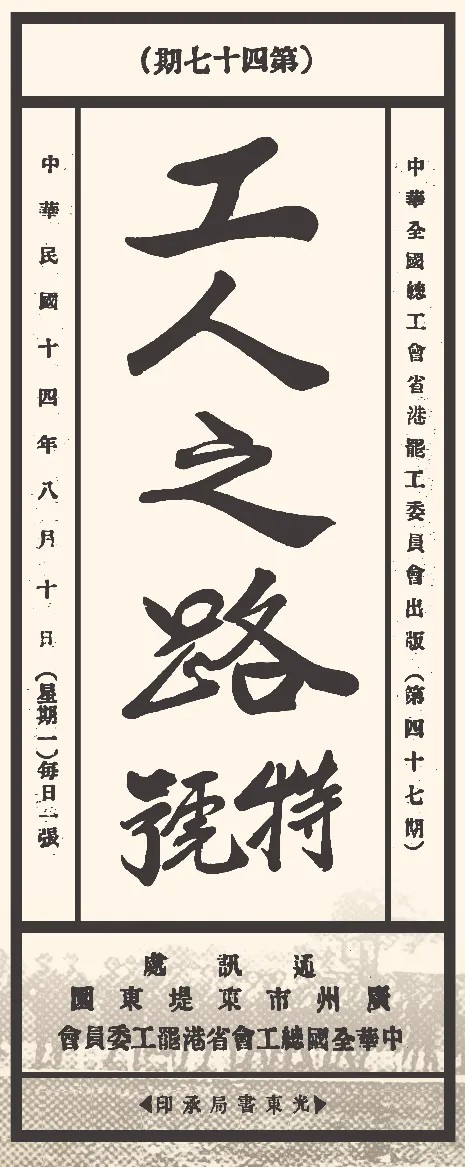 （第四十七期）
中華全國總工會省港罷工委員會出版（第四十七期）
工人之路
特號
中華民國十四年八月十日（星期一）每日一張
通訊處
廣州市東堤東園
中華全國總工會省港罷工委員會
光東書局承印